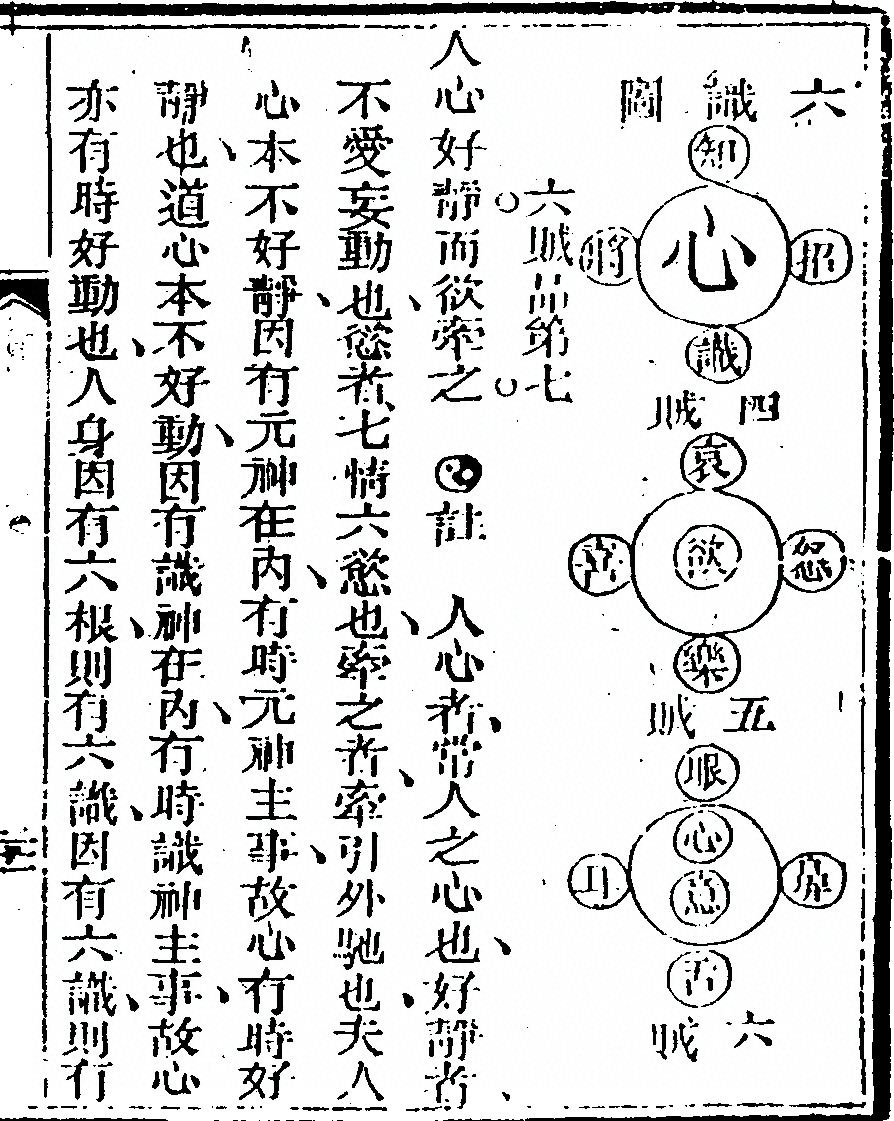 六識圖
知
招
心
將
識
四賊
哀
欲
喜
樂
五賊
眼
鼻
心
意
耳
舌
六賊
六賊品第七
人心好靜而欲牽之 註 人心者、常人之心也、好靜者、
不愛妄動也、慾者、七情六慾也、牽之者、牽引外馳也、夫人
心本不好靜、因有元神在內、有時元神主事、故心有時好
靜也、道心本不好動、因有識神在內、有時識神主事、故心
亦有時好動也、人身因有六根、則有六識、因有六識、則有